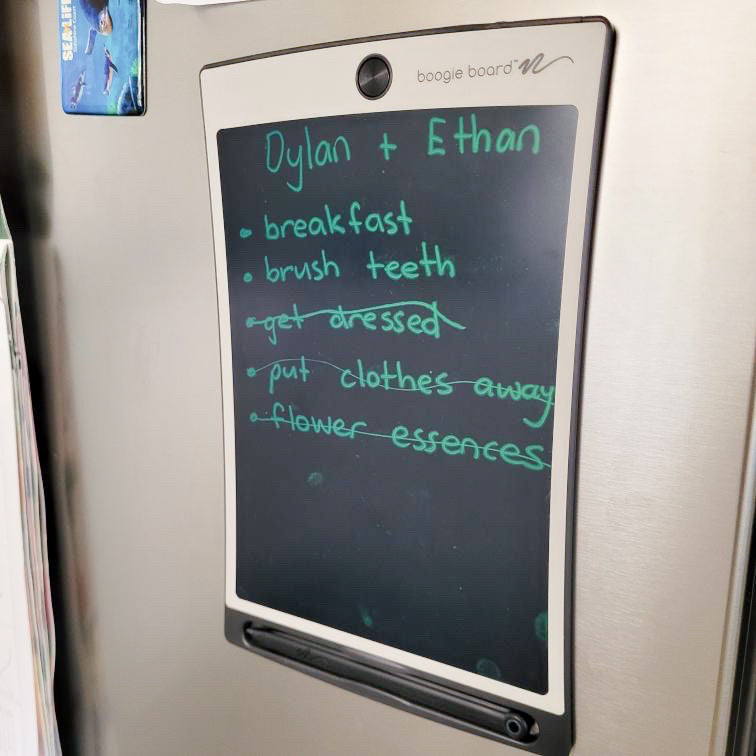 SEA LIFE
boogie board™
Dylan + Ethan
• breakfast
• brush teeth
• get dressed
• put clothes away
• flower essences